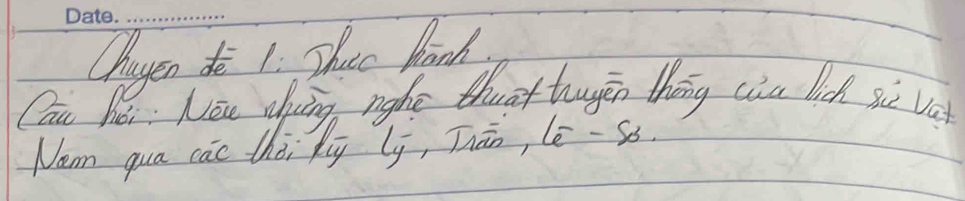 Date.
Chuyên đề 1: Thực hành.
Câu hỏi: Nêu những nghệ thuật truyền thống của lịch sử Việt
Nam qua các thời kỳ Lý, Trần, Lê - Sơ.